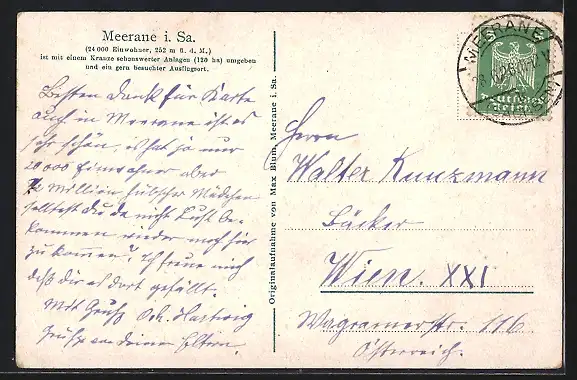 Meerane i. Sa.
(24 000 Einwohner, 252 m ü. d. M.)
ist mit einem Kranze sehenswerter Anlagen (120 ha) umgeben
und ein gern besuchter Ausflugsort.
Besten Dank für Karte
auch in Meerane ist es
sehr schön, es hat ja nur
24000 Einwohner aber
½ Million hübscher Mädchen
solltest Du da nicht Lust be-
kommen wieder mal hier
zu kommen? Ich freue mich
daß dir es dort gefällt.
Mit Gruß Hartwig
Grüße an deine Eltern.
Originalaufnahme von Max Blum, Meerane i. Sa.
MEERANE
Deutsches
Reich
Herrn
Walter Kunzmann
Bäcker
Wien. XXI
Wagramerstr. 116
Österreich.